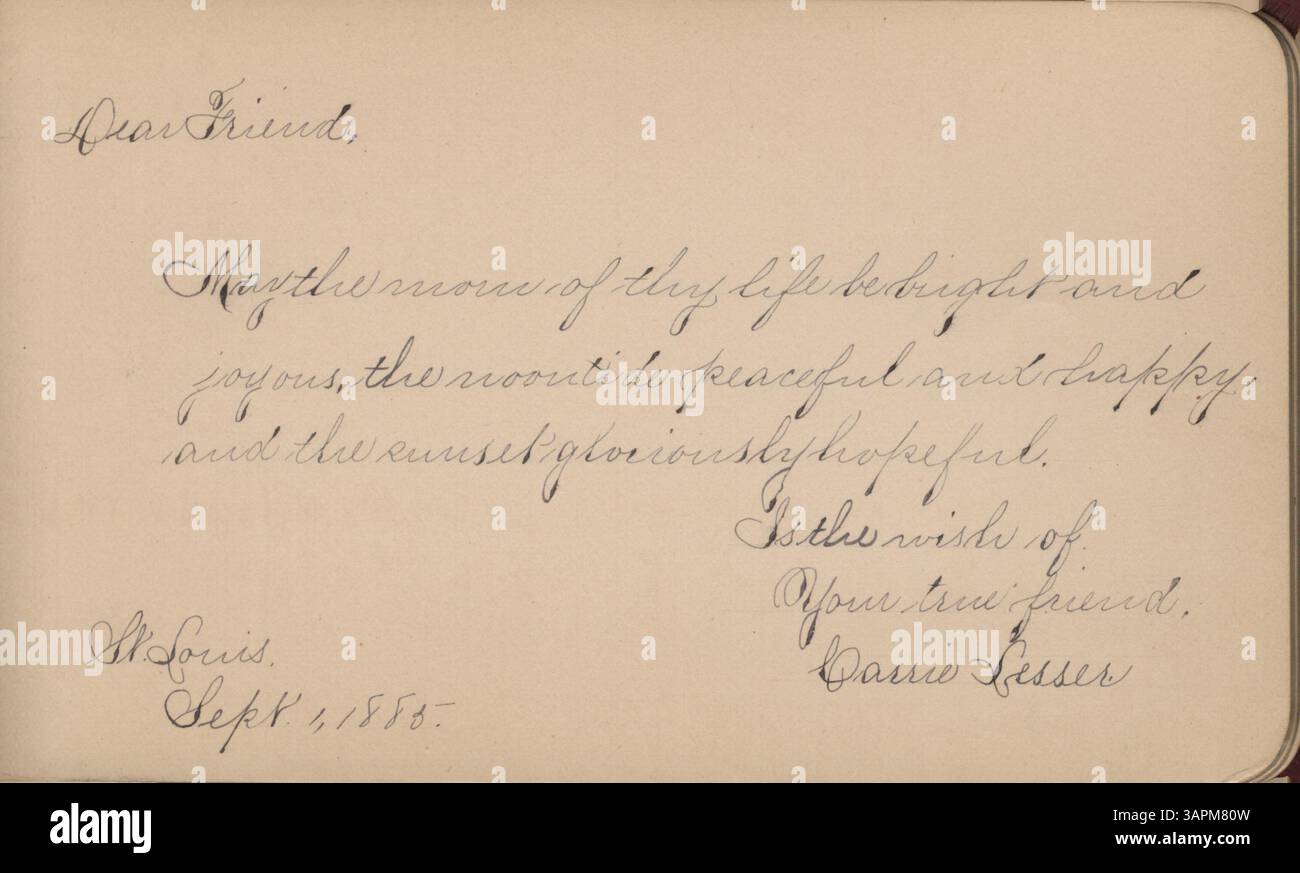 Dear Friend.
May the morn of thy life be bright and
joyous, the noontide peaceful and happy
and the sunset gloriously hopeful.
Is the wish of
Your true friend.
Carrie Lesser
St. Louis.
Sept. 1, 1885.
alamy
Image ID: 3APM80W
www.alamy.com